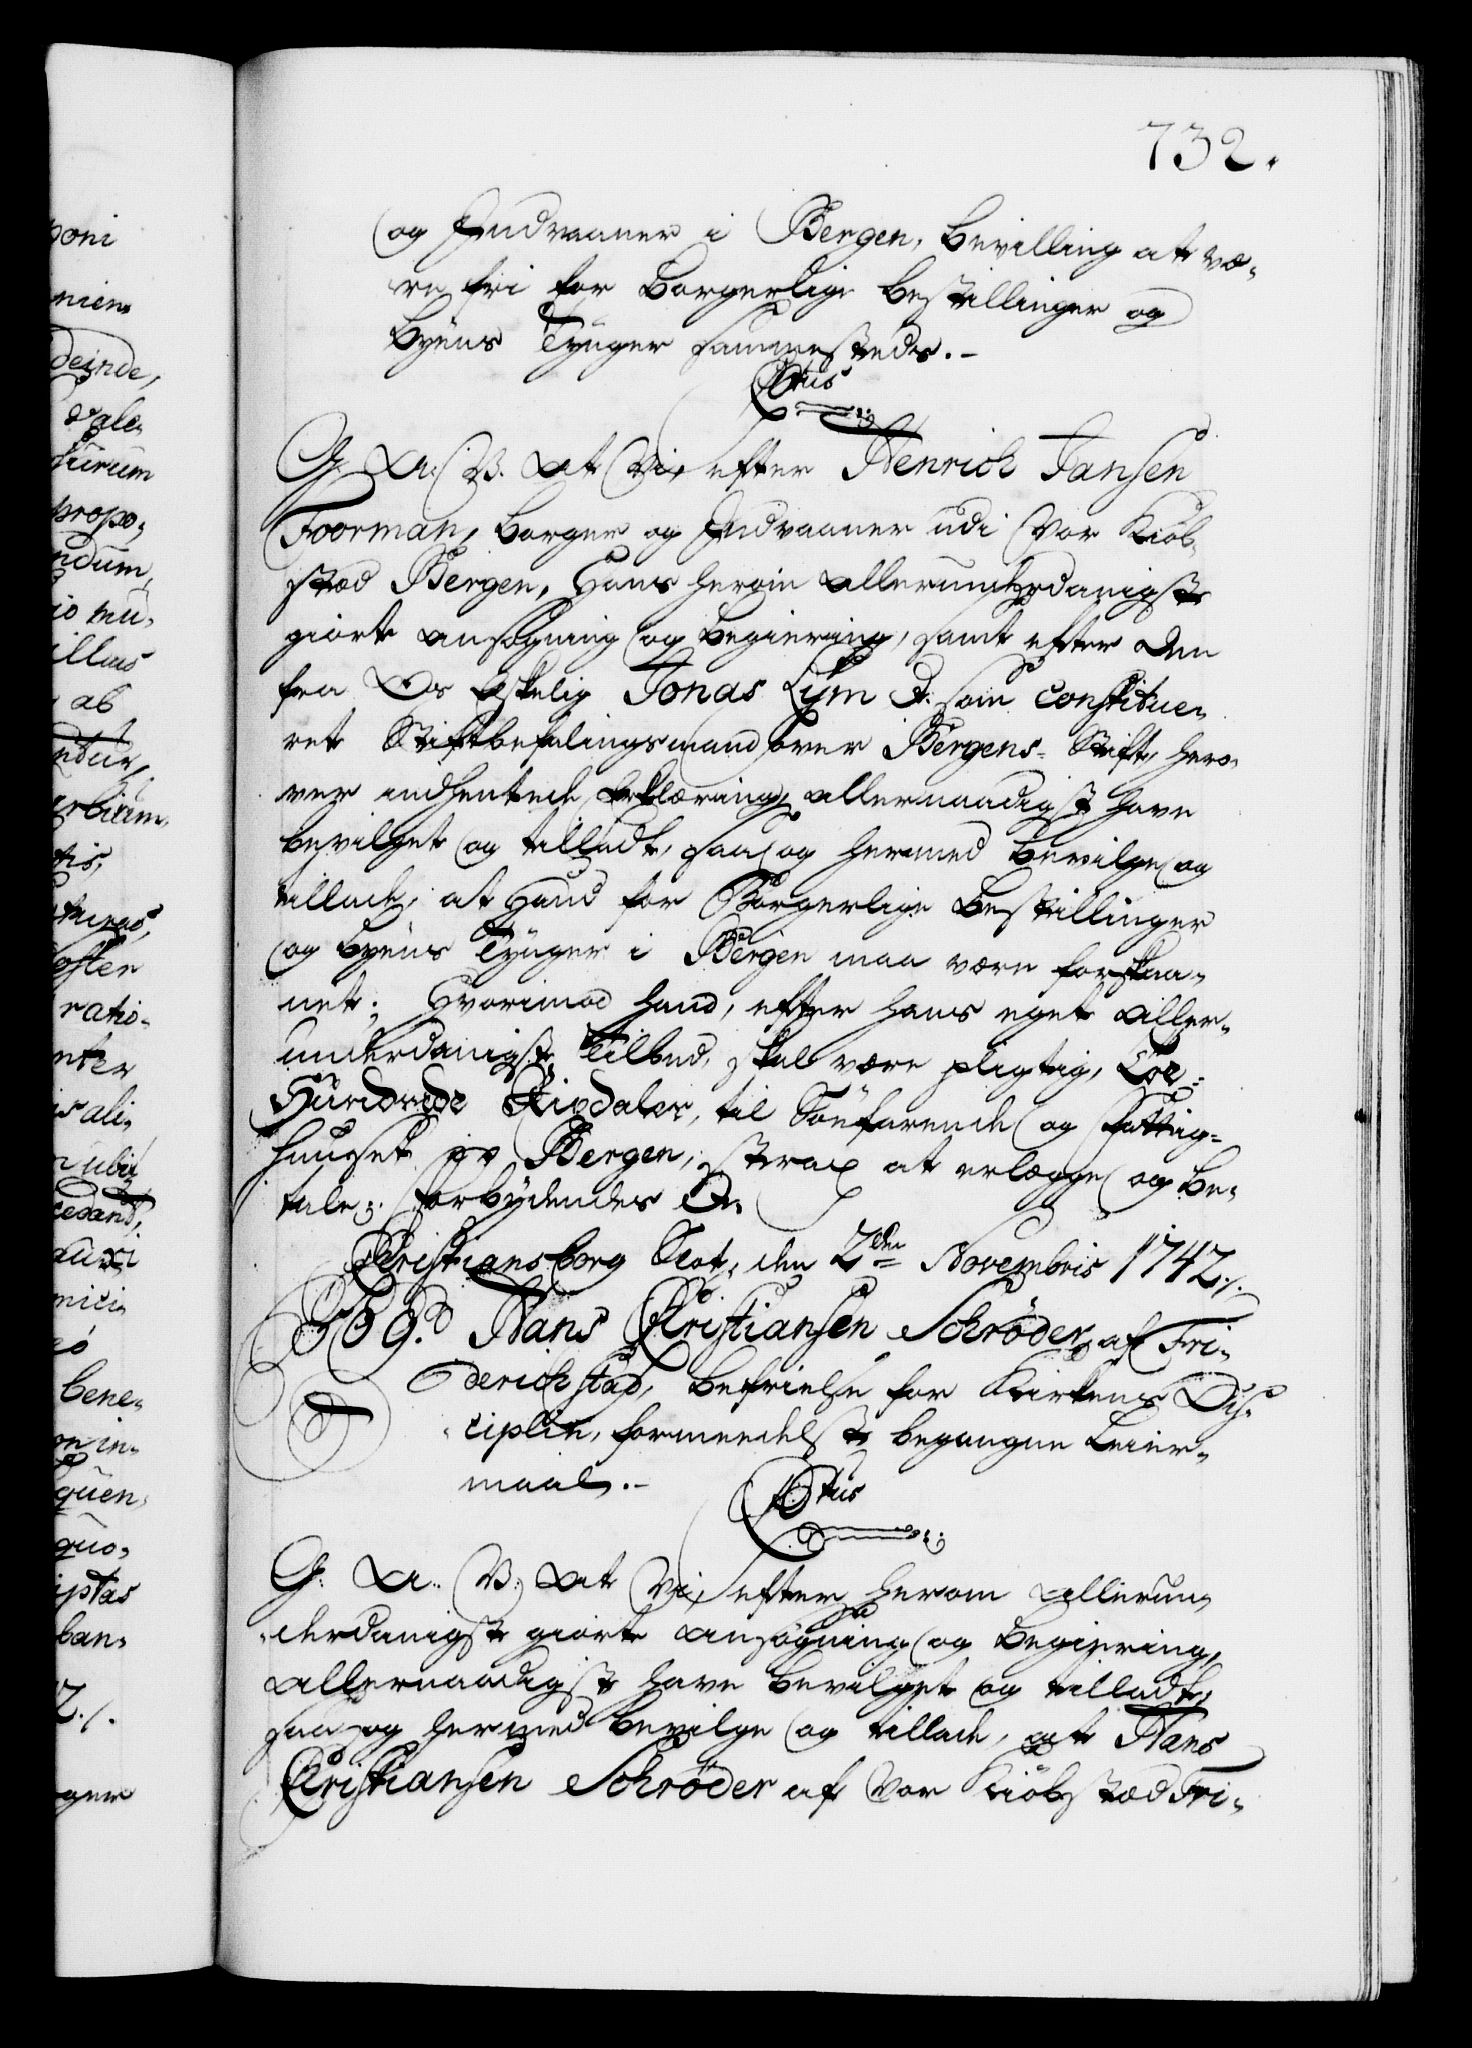 732.
og Indvaaner i Bergen, Bevilling at væ-
re fri for Borgerlige Bestillinger og
Byens Tynger sammesteds.-
Ctus
G. A. V. At Vi, efter Henrich Jansen
Foorman, borger og Indvaaner udi Vor Kiøb-
stæd Bergen, Hans herom allerunderdanigste
giorte ansøgning og begiering, samt efter den
fra Os Elskelig Jonas Lym &. som constitue-
ret Stiftbefalingsmand over Bergens- Stift, hero-
ver indhentede Erklæring, allernaadigst have
bevilget og tilladt, saa og hermed bevilge og
tillade, at Hand for Borgerlige Bestillinger
og Byens Tynger i Bergen maa være forskaa-
net; Hvorimod hand, efter hans eget aller-
underdanigste Tilbud, skal være pligtig, Toe-
Hundrede Rixdaler, til Søefarende og Fattig-
Huuset i Bergen, strax at erlægge og be-
tale. Forbydendes &.
Christiansborg Slot, den 2den Novembris 1742./.
569. Hans Christiansen Schrøder, af Fri-
derichstad, befrielse for Kirkens Dis-
ciplin, formedelst begangne Leier-
maal.-
Ctus
G. A. V. At Vi, efter herom allerun-
derdanigste giorte ansøgning og begiering,
allernaadigst have bevilget og tilladt,
saa og hermed bevilge og tillade, at Hans
Christiansen Schrøder af Vor Kiøbstæd Fri-
poni
deinde,
vale-
propo-
ab
oster
ratio-
ali-
ubi
auxi
bene-
in-
quen-
quo-
iptas
ban-